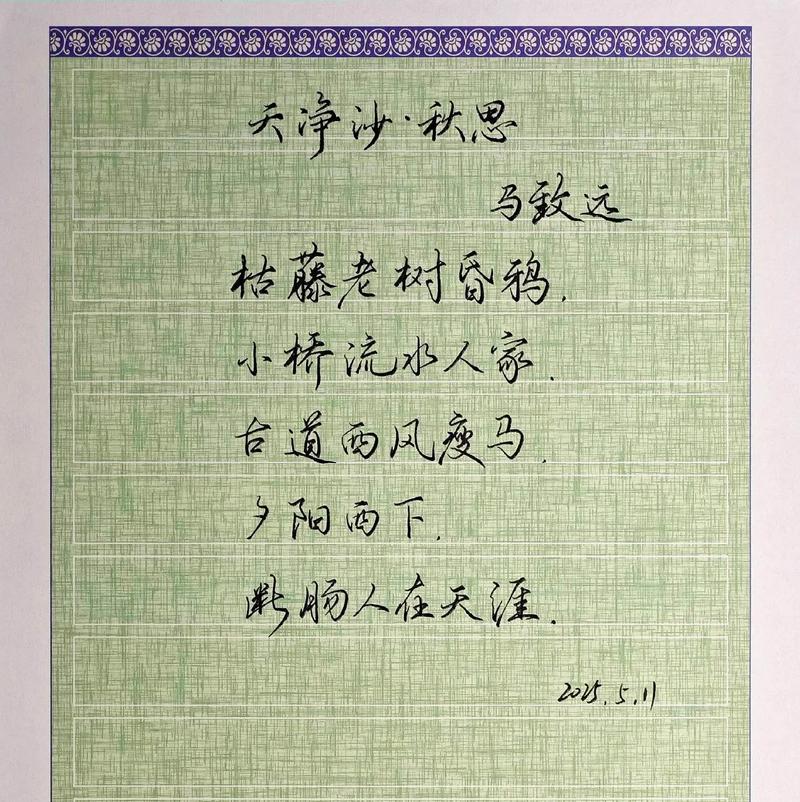 天净沙·秋思
马致远
枯藤老树昏鸦.
小桥流水人家.
古道西风瘦马.
夕阳西下.
断肠人在天涯.
2025.5.11